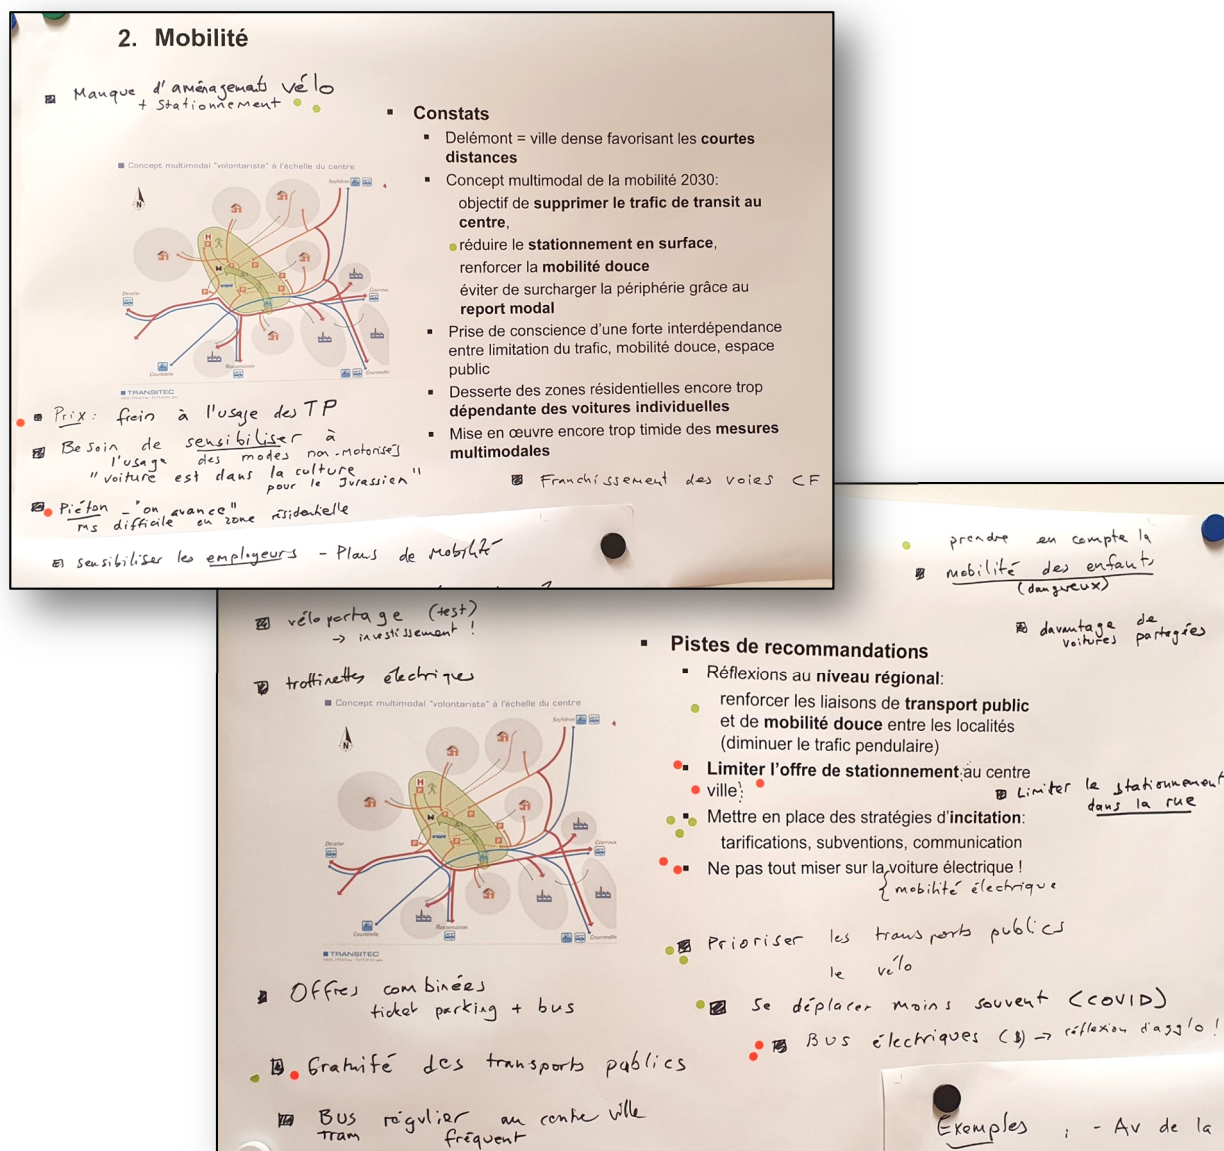 2. Mobilité
Manque d'aménagements vélo
+ stationnement
Concept multimodal "volontariste" à l'échelle du centre
Constats
Delémont = ville dense favorisant les courtes
distances
Concept multimodal de la mobilité 2030:
objectif de supprimer le trafic de transit au
centre,
réduire le stationnement en surface,
renforcer la mobilité douce
éviter de surcharger la périphérie grâce au
report modal
Prise de conscience d'une forte interdépendance
entre limitation du trafic, mobilité douce, espace
public
Desserte des zones résidentielles encore trop
dépendante des voitures individuelles
Mise en œuvre encore trop timide des mesures
multimodales
Franchissement des voies CF
N
Soyhières
Develier
Courroux
Courtételle
Rossemaison
Courrendlin
TRANSITEC
Prix : frein à l'usage des TP
Besoin de sensibiliser à
l'usage des modes non-motorisés
"voiture est dans la culture
pour le Jurassien"
Piéton - "on avance"
ms difficile en zone résidentielle
sensibiliser les employeurs - Plans de mobilité
prendre en compte la
mobilité des enfants
(dangereux)
davantage de
voitures partagées
vélopartage (test)
→ investissement !
trottinettes électriques
Concept multimodal "volontariste" à l'échelle du centre
Pistes de recommandations
Réflexions au niveau régional:
renforcer les liaisons de transport public
et de mobilité douce entre les localités
(diminuer le trafic pendulaire)
Limiter l'offre de stationnement au centre
ville
Limiter le stationnement
dans la rue
Mettre en place des stratégies d'incitation:
tarifications, subventions, communication
Ne pas tout miser sur la voiture électrique !
mobilité électrique
N
Soyhières
Develier
Courroux
Courtételle
Rossemaison
Courrendlin
TRANSITEC
Prioriser les transports publics
le vélo
Se déplacer moins souvent (COVID)
Bus électriques ($) → réflexion d'agglo !
Offres combinées
ticket parking + bus
Gratuité des transports publics
Bus régulier au centre ville
tram fréquent
Exemples : - Av de la